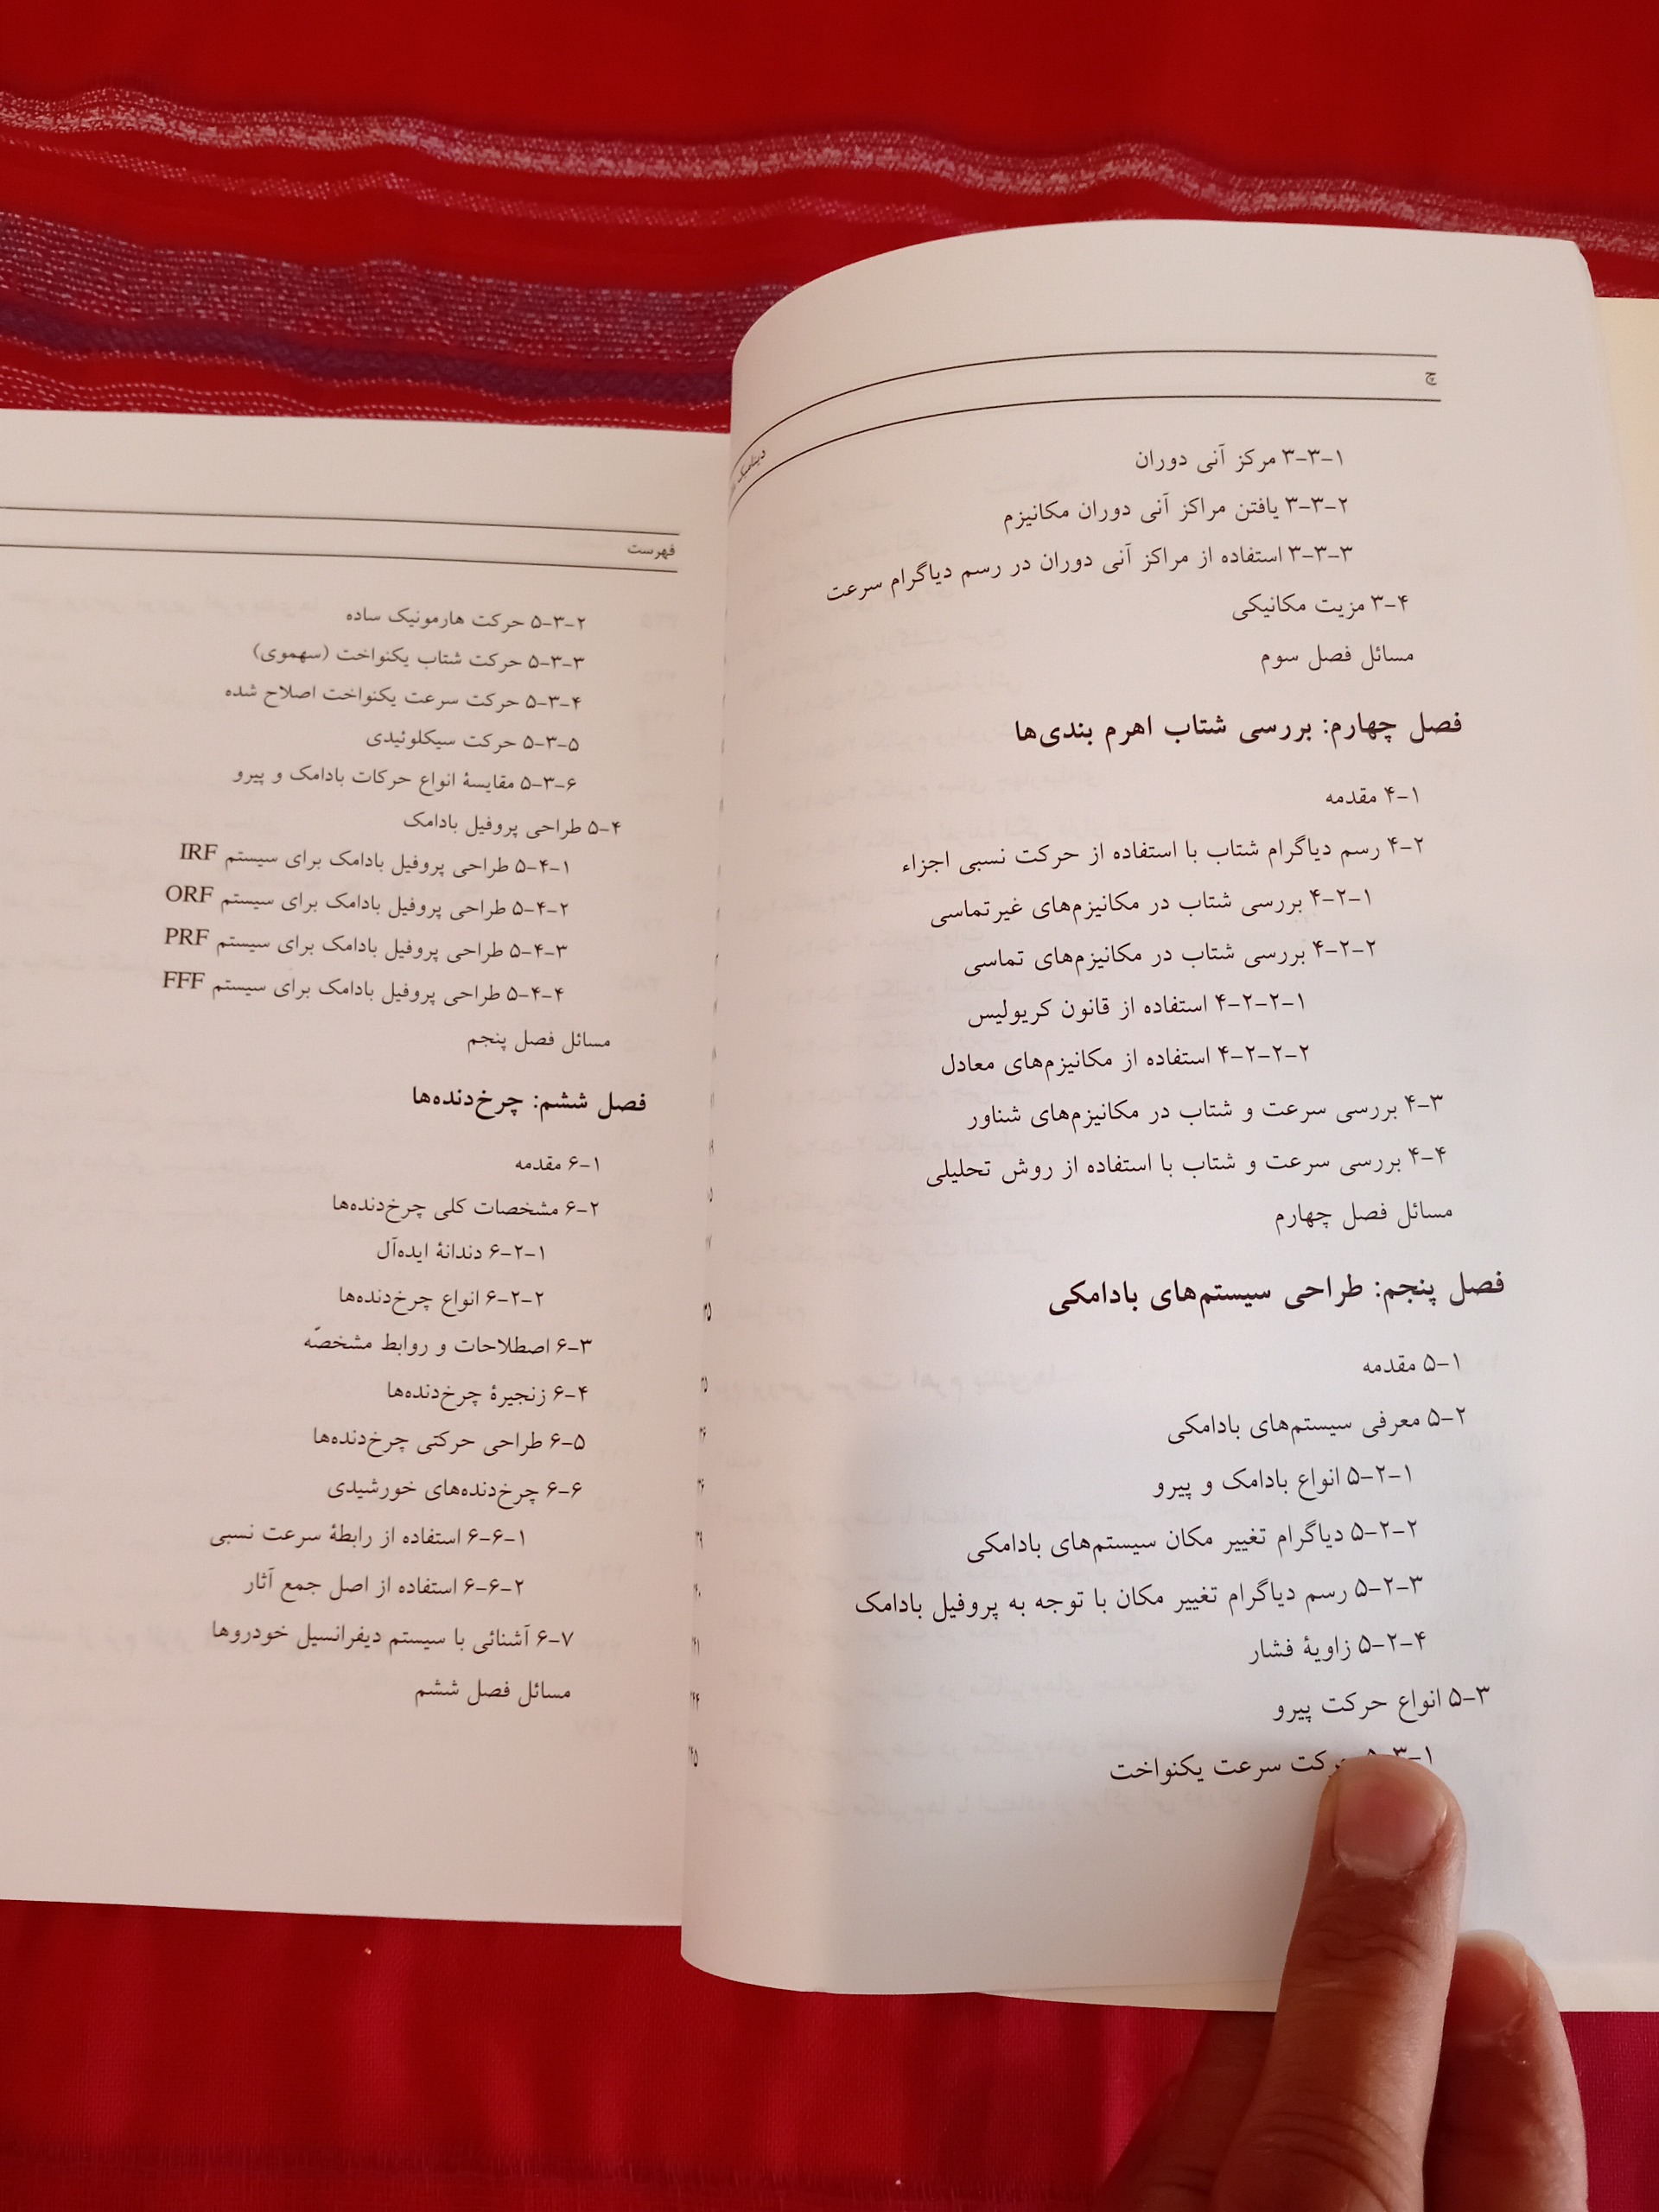 چ
دینامیک
۳-۳-۱ مرکز آنی دوران
۳-۳-۲ یافتن مراکز آنی دوران مکانیزم
۳-۳-۳ استفاده از مراکز آنی دوران در رسم دیاگرام سرعت
۳-۴ مزیت مکانیکی
مسائل فصل سوم
فصل چهارم: بررسی شتاب اهرم بندی‌ها
۴-۱ مقدمه
۴-۲ رسم دیاگرام شتاب با استفاده از حرکت نسبی اجزاء
۴-۲-۱ بررسی شتاب در مکانیزم‌های غیرتماسی
۴-۲-۲ بررسی شتاب در مکانیزم‌های تماسی
۴-۲-۲-۱ استفاده از قانون کریولیس
۴-۲-۲-۲ استفاده از مکانیزم‌های معادل
۴-۳ بررسی سرعت و شتاب در مکانیزم‌های شناور
۴-۴ بررسی سرعت و شتاب با استفاده از روش تحلیلی
مسائل فصل چهارم
فصل پنجم: طراحی سیستم‌های بادامکی
۵-۱ مقدمه
۵-۲ معرفی سیستم‌های بادامکی
۵-۲-۱ انواع بادامک و پیرو
۵-۲-۲ دیاگرام تغییر مکان سیستم‌های بادامکی
۵-۲-۳ رسم دیاگرام تغییر مکان با توجه به پروفیل بادامک
۵-۲-۴ زاویهٔ فشار
۵-۳ انواع حرکت پیرو
۵-۳-۱ حرکت سرعت یکنواخت
فهرست
۵-۳-۲ حرکت هارمونیک ساده
۵-۳-۳ حرکت شتاب یکنواخت (سهموی)
۵-۳-۴ حرکت سرعت یکنواخت اصلاح شده
۵-۳-۵ حرکت سیکلوئیدی
۵-۳-۶ مقایسهٔ انواع حرکات بادامک و پیرو
۵-۴ طراحی پروفیل بادامک
۵-۴-۱ طراحی پروفیل بادامک برای سیستم IRF
۵-۴-۲ طراحی پروفیل بادامک برای سیستم ORF
۵-۴-۳ طراحی پروفیل بادامک برای سیستم PRF
۵-۴-۴ طراحی پروفیل بادامک برای سیستم FFF
مسائل فصل پنجم
فصل ششم: چرخ‌دنده‌ها
۶-۱ مقدمه
۶-۲ مشخصات کلی چرخ‌دنده‌ها
۶-۲-۱ دندانهٔ ایده‌آل
۶-۲-۲ انواع چرخ‌دنده‌ها
۶-۳ اصطلاحات و روابط مشخصّه
۶-۴ زنجیرهٔ چرخ‌دنده‌ها
۶-۵ طراحی حرکتی چرخ‌دنده‌ها
۶-۶ چرخ‌دنده‌های خورشیدی
۶-۶-۱ استفاده از رابطهٔ سرعت نسبی
۶-۶-۲ استفاده از اصل جمع آثار
۶-۷ آشنائی با سیستم دیفرانسیل خودروها
مسائل فصل ششم